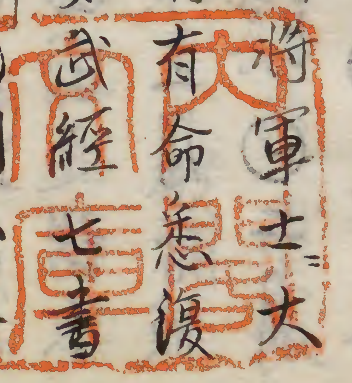 將軍士大
有命悉復
武經七書